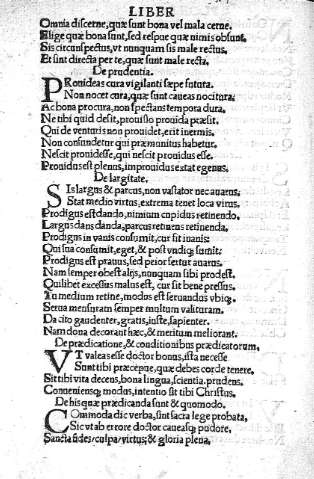 LIBER
Omnia discerne, quæ sunt bona vel mala cerne.
Elige quæ bona sunt, sed respue quæ nimis obsunt.
Sis circunspectus, vt nunquam sis male rectus.
Et sint directa per te, quæ sunt male recta.
De prudentia.
PRouideas cura vigilanti sæpe futura.
Non nocet cura, quæ sunt caueas nocitura:
Ac bona procura, non spectans tempora dura,
Ne tibi quid desit, prouisio prouida præsit.
Qui de venturis non prouidet, erit inermis.
Non confundetur qui præmunitus habetur.
Nescit prouidesse, qui nescit prouidus esse.
Prouidus est plenus, improuidus extat egenus.
De largitate.
SIs largus & parcus, non vastator nec auarus;
Stat medio virtus, extrema tenet loca virus.
Prodigus est dando, nimium cupidus retinendo,
Largus dans danda, parcus retinens retinenda,
Prodigus in vanis consumit, cur sit inanis:
Qui sua consumit, eget, & post vndiq; sumit:
Prodigus est prauus, sed peior fertur auarus.
Nam semper obest alijs, nunquam sibi prodest.
Quilibet excessus malus est, cur sit bene pressus.
Tu medium retine, modus est seruandus vbiq;.
Serua mensuram semper multum valituram.
Da cito gaudenter, gratis, iuste, sapienter.
Nam dona decorant hæc, & meritum meliorant.
De prædicatione, & conditionibus prædicatorum.
VT valeas esse doctor bonus, ista necesse
Sunt tibi præcepue, quæ debes corde tenere.
Sit tibi vita decens, bona lingua, scientia, prudens,
Conueniensq; modus, intentio sit tibi Christus.
De his quæ prædicanda sunt & quomodo.
COmmoda dic verba, sint sacra lege probata,
Sic vt ab errore doctor caueasq; pudore,
Sancta fides, culpa, virtus; & gloria plena,